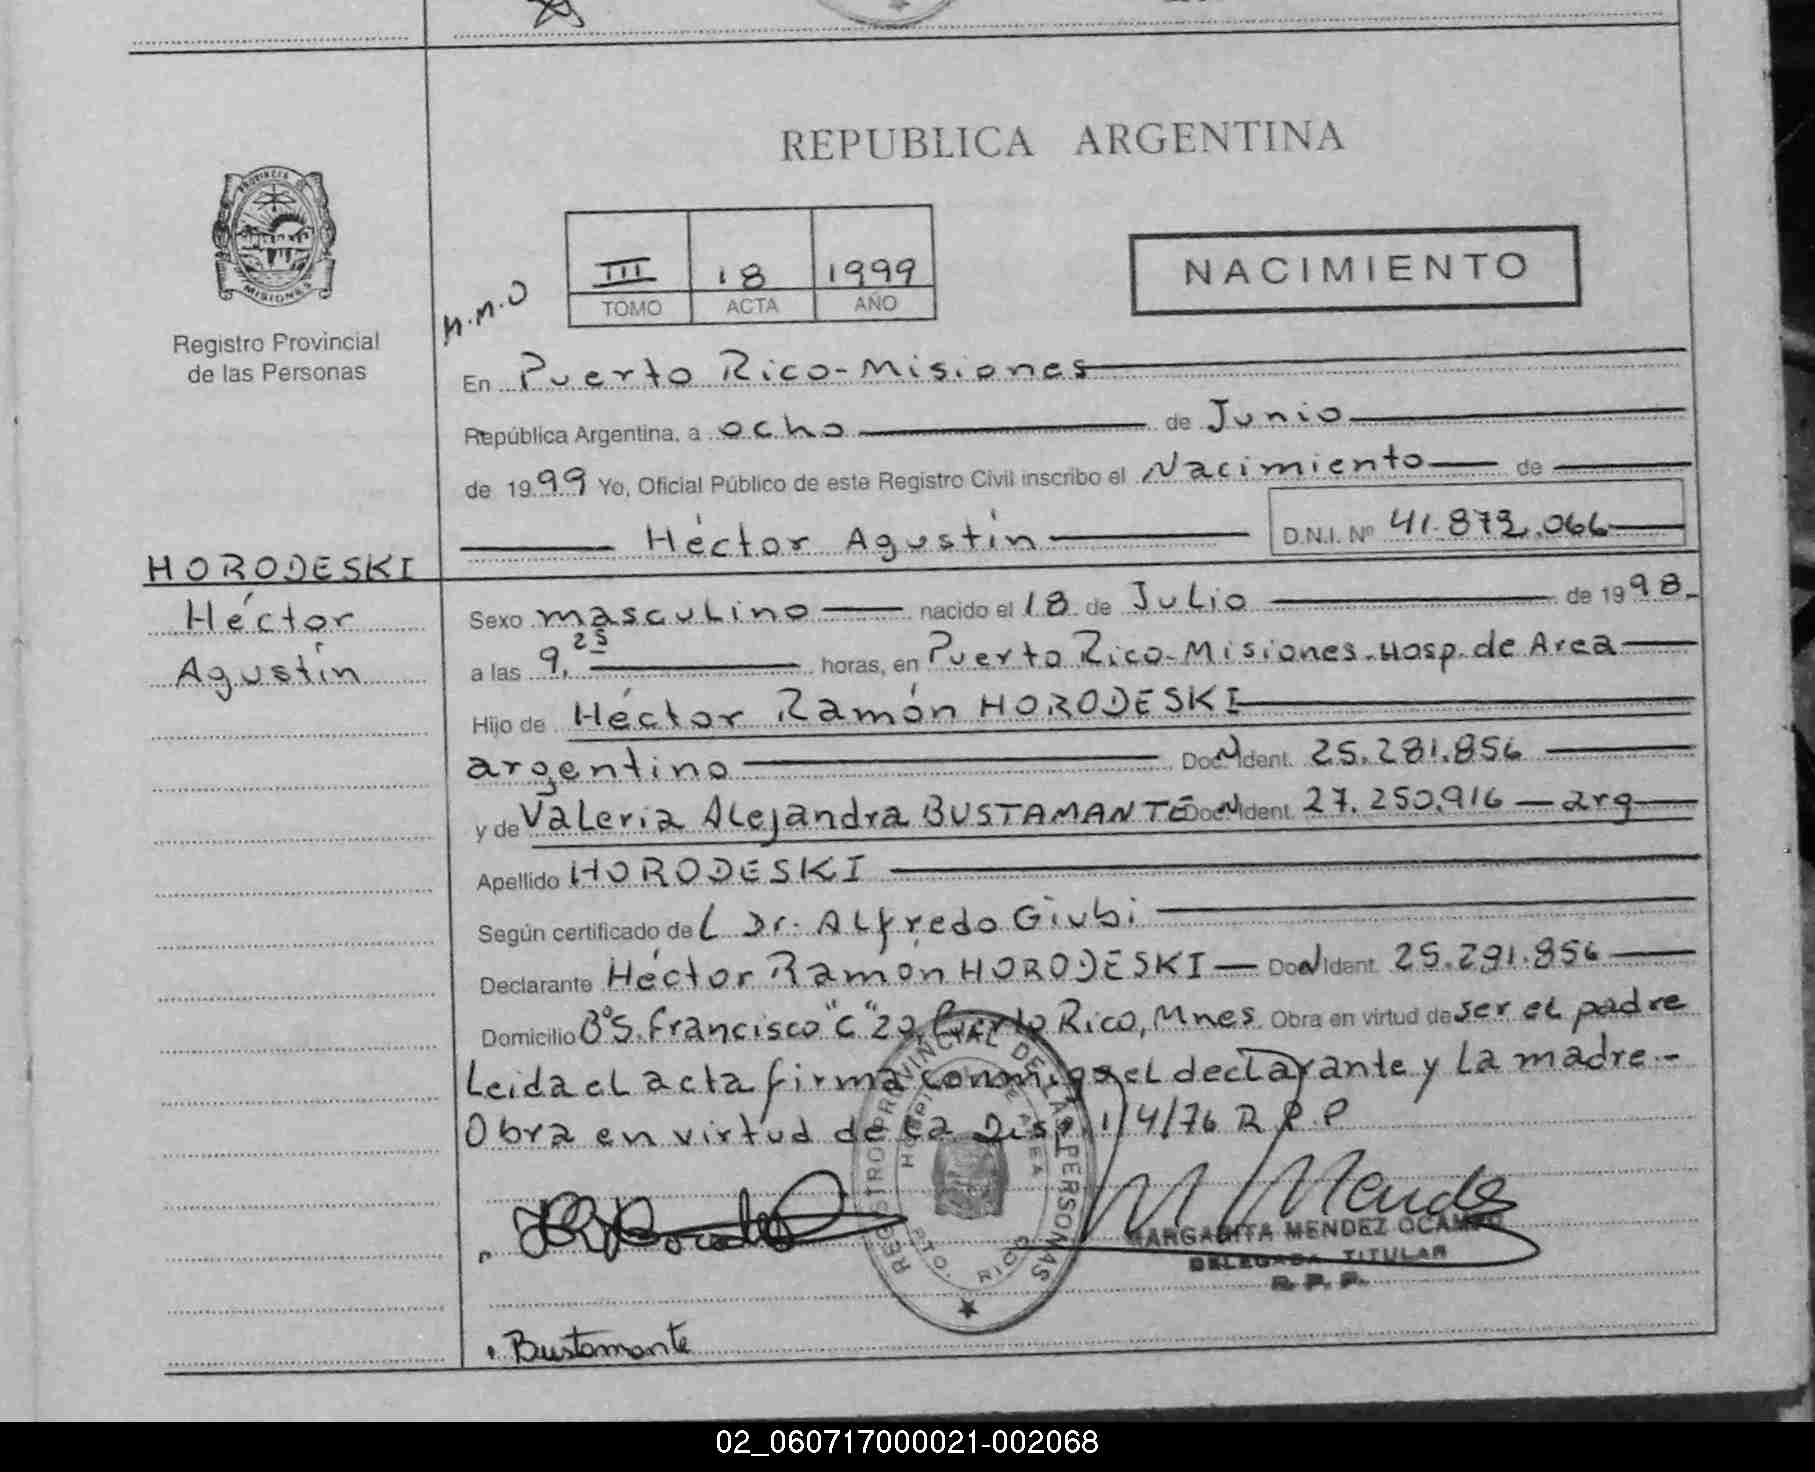 REPUBLICA ARGENTINA
PROVINCIA DE
MISIONES
Registro Provincial
de las Personas
H.M.O
III 18 1999
TOMO ACTA AÑO
NACIMIENTO
En Puerto Rico-Misiones
República Argentina, a ocho de Junio
de 1999 Yo, Oficial Público de este Registro Civil inscribo el Nacimiento de
Héctor Agustín D.N.I. Nº 41.872.066
HORODESKI
Héctor
Agustín
Sexo masculino nacido el 18 de Julio de 1998.
a las 9,25 horas, en Puerto Rico-Misiones-Hosp. de Area
Hijo de Héctor Ramón HORODESKI
argentino Doc.N.Ident. 25.281.856
y de Valeria Alejandra BUSTAMANTE Doc.N.Ident. 27.250.916 — arg
Apellido HORODESKI
Según certificado del Dr. Alfredo Giubi
Declarante Héctor Ramón HORODESKI — Doc.N.Ident. 25.281.856
Domicilio Bº S. Francisco "C" 20, Puerto Rico, Mnes. Obra en virtud de ser el padre
Leida el acta firma conmigo el declarante y la madre.-
Obra en virtud de la Disp. 114/76 R.P.P
REGISTRO PROVINCIAL DE LAS PERSONAS
HOSPITAL DE AREA
PTO. RICO
M Mendez
MARGARITA MENDEZ OCAMPO
DELEGADA TITULAR
R. P. P.
Bustamante
02_060717000021-002068